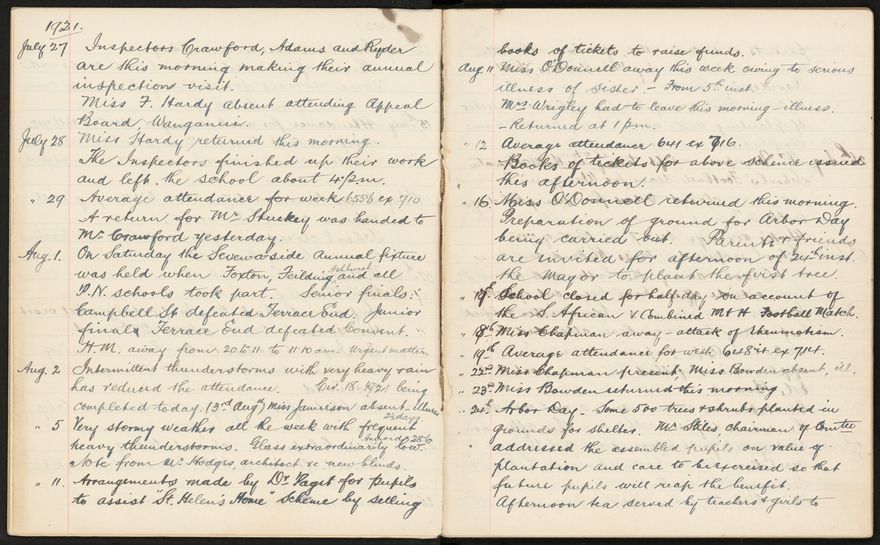 1921.
July 27 Inspectors Crawford, Adams and Ryder
are this morning making their annual
inspection visit.
Miss F. Hardy absent attending Appeal
Board, Wanganui.
July 28 Miss Hardy returned this morning.
The Inspectors finished up their work
and left the school about 4 p.m.
" 29 Average attendance for week 655.6 ex 710
A return for Mr Stuckey was handed to
Mr Crawford yesterday.
Aug. 1. On Saturday the Seven-a-side annual fixture
was held when Foxton, Feilding and all
P.N. schools took part. Senior finals:
Campbell St defeated Terrace End. Junior
finals Terrace End defeated Convent.
H.M. away from 20 to 11 to 11 10 a.m. Urgent matter.
Aug. 2 Intermittent thunderstorms with very heavy rain
has reduced the attendance. Cir. 18. 1921 being
completed today. (3rd Aug) Miss Jamieson absent. illness
2½ days
" 5 Very stormy weather all the week with frequent
heavy thunderstorms. Glass extraordinarily low. 28.6
Note from Mr Hodges, architect re new blinds.
" 11. Arrangements made by Dr Paget for pupils
to assist "St. Helen's Home" Scheme by selling
books of tickets to raise funds.
Aug. 11 Miss O'Donnell away this week owing to serious
illness of sister - From 5th inst.
Mrs Wrigley had to leave this morning - illness.
- Returned at 1 p.m.
" 12 Average attendance 641 ex 716.
Books of tickets for above scheme issued
this afternoon.
" 16 Miss O'Donnell returned this morning.
Preparation of ground for Arbor Day
being carried out. Parents & friends
are invited for afternoon of 24th inst.
the Mayor to plant the first tree.
" School closed for half-day on account of
the S. African v Combined M & H Football Match.
" 18th Miss Chapman away - attack of rheumatism.
" 19th Average attendance for week 648.4 ex 714.
" 22nd Miss Chapman present; Miss Bowden absent, ill.
" 23rd Miss Bowden returned this morning.
" 24th Arbor Day - Some 500 trees & shrubs planted in
grounds for shelter. Mr Stiles, chairman of Comtee
addressed the assembled pupils on value of
plantation and care to be exercised so that
future pupils will reap the benefit.
Afternoon tea served by teachers & girls to